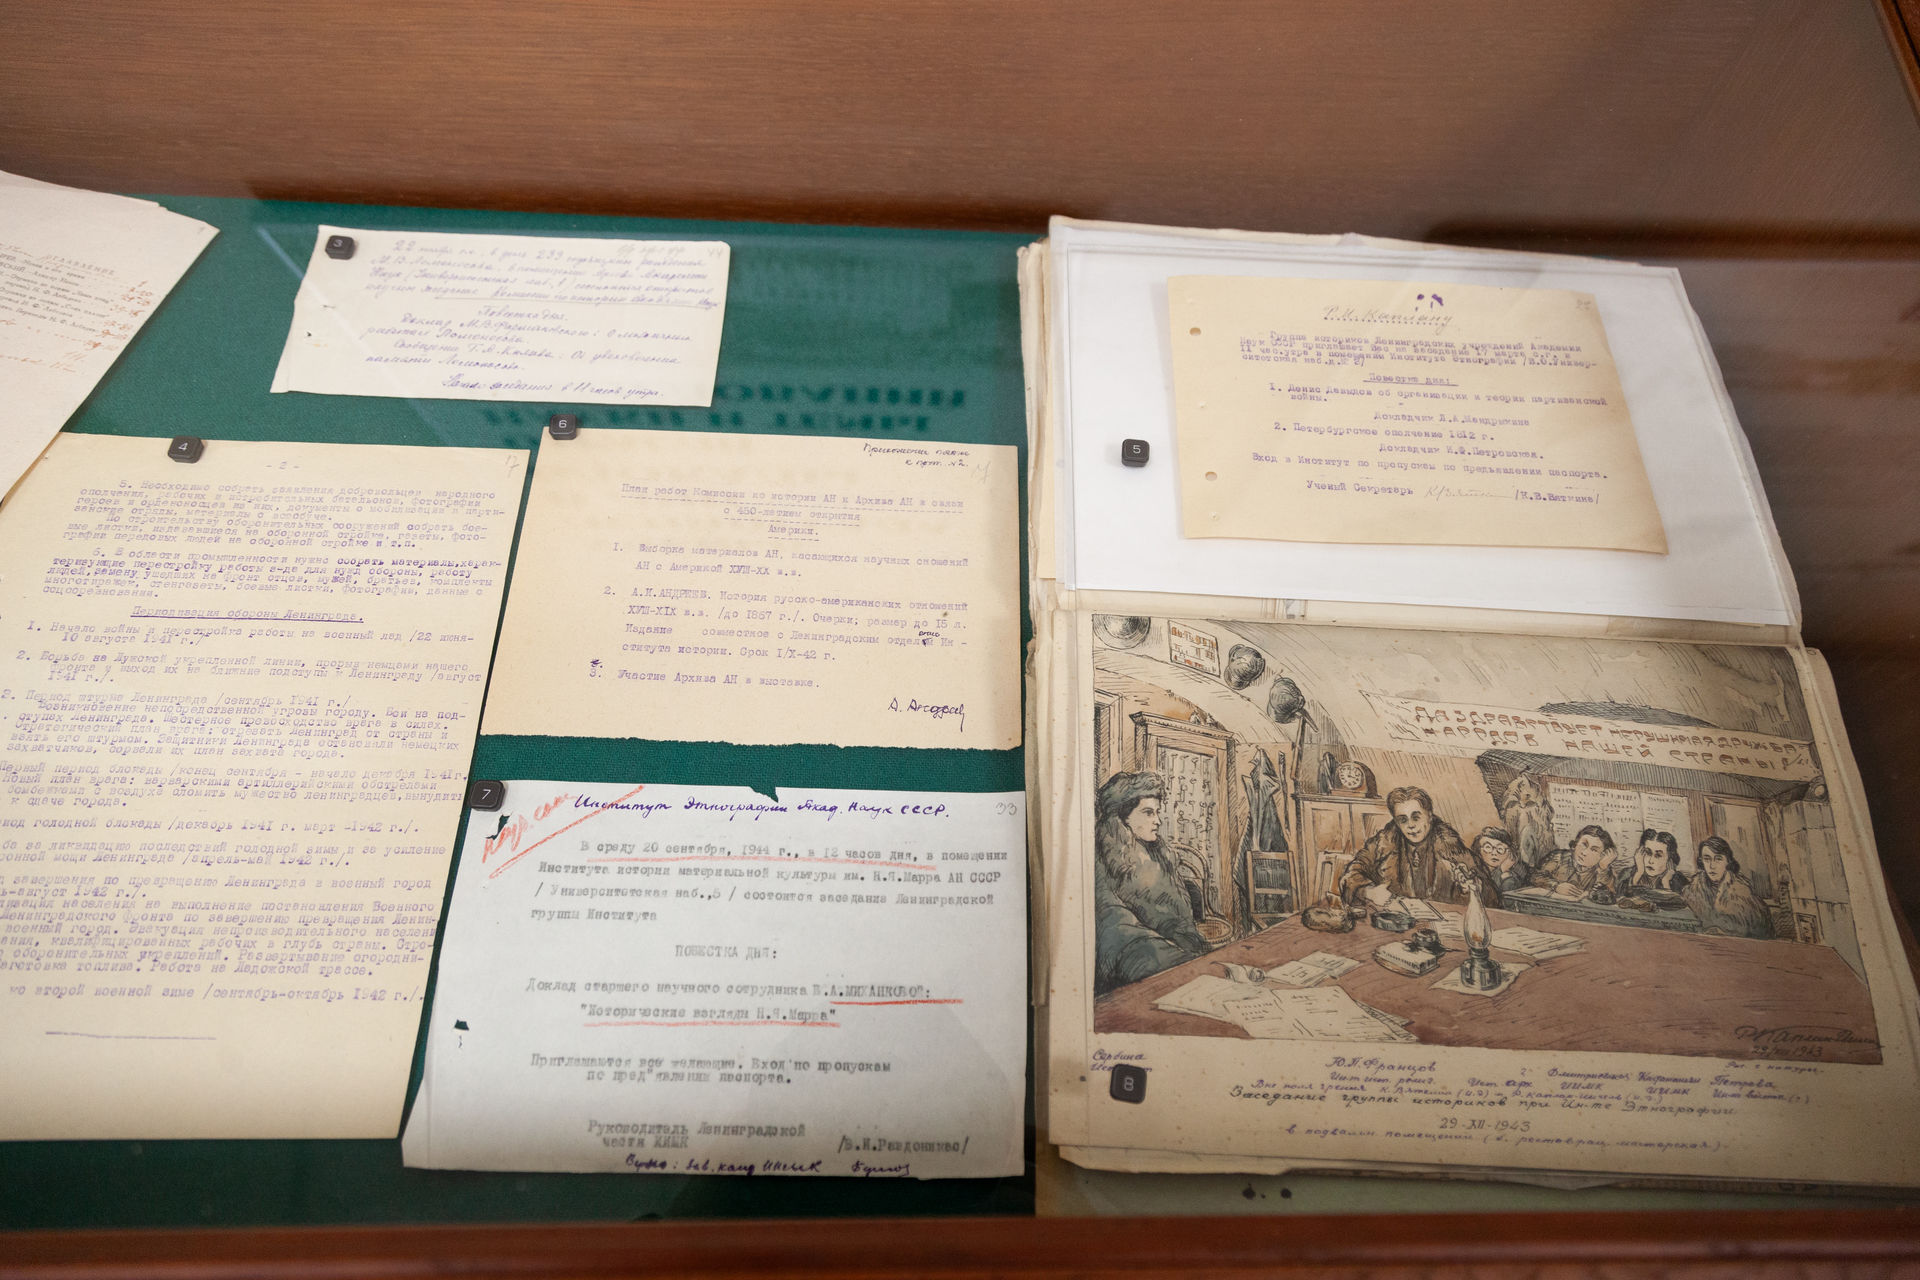 ОГЛАВЛЕНИЕ
3
22 в день 239 годовщины рождения
М.В. Ломоносова, в помещении Академии
Наук /Университетская наб., 
Повестка дня.
Доклад М.В. Фармаковского: О 
работах Ломоносова.
Сообщение Г.А. Князева: Об увековечении
памяти Ломоносова.
Начало заседания в 11 часов утра.
4
17
- 2 -
5. Необходимо собрать заявления добровольцев народного
ополчения, рабочих и истребительных батальонов, фотографии
героев и орденоносцев из них, документы о мобилизации в парти-
занские отряды, материалы о всеобуче.
По строительству оборонительных сооружений собрать бое-
вые листки, издававшиеся на оборонной стройке, газеты, фото-
графии передовых людей на оборонной стройке и т.п.
6. В области промышленности нужно собрать материалы, харак-
теризующие перестройку работы з-да для нужд обороны, работу
людей, замену ушедших на фронт отцов, мужей, братьев, комплекты
многотиражек, стенгазеты, боевые листки, фотографии, данные о
соцсоревновании.
Периодизация обороны Ленинграда.
1. Начало войны и перестройка работы на военный лад /22 июня-
10 августа 1941 г./
2. Борьба на Лужской укрепленной линии, прорыв немцами нашего
фронта и выход их на ближние подступы к Ленинграду /август
1941 г./.
3. Период штурма Ленинграда /сентябрь 1941 г./
Возникновение непосредственной угрозы городу. Бои на под-
ступах Ленинграда. Шестерное превосходство врага в силах.
Стратегический план врага: отрезать Ленинград от страны и
взять его штурмом. Защитники Ленинграда остановили немецких
захватчиков, сорвали их план захвата города.
Первый период блокады /конец сентября - начало декабря 1941г.
Новый план врага: варварскими артиллерийскими обстрелами
бомбежками с воздуха сломить мужество ленинградцев, вынудить
к сдаче города.
иод голодной блокады /декабрь 1941 г. март -1942 г./.
ба за ликвидацию последствий голодной зимы и за усиление
ронной мощи Ленинграда /апрель-май 1942 г./.
завершения по превращению Ленинграда в военный город
ь-август 1942 г./.
изация населения на выполнение постановления Военного
Ленинградского Фронта по завершению превращения Ленин-
военный город. Эвакуация непроизводительного населени
ания, квалифицированных рабочих в глубь страны. Стро-
о оборонительных укреплений. Развертывание огородни-
аготовка топлива. Работа на Ладожской трассе.
ко второй военной зиме /сентябрь-октябрь 1942 г./.
6
Приложение
к прот. №2.
План работ Комиссии по истории АН и Архива АН в связи
с 450-летием открытия
Америки.
1. Выборка материалов АН, касающихся научных сношений
АН с Америкой ХУШ-ХХ в.в.
2. А.И.АНДРЕЕВ. История русско-американских отношений
ХУШ-ХIХ в.в. /до 1867 г./. Очерки; размер до 15 л.
Издание совместное с Ленинградским отделением Ин-
ститута истории. Срок I/X-42 г.
3. Участие Архива АН в выставке.
А. Андреев
7
33
Институт Этнографии Акад. Наук СССР.
В среду 20 сентября, 1944 г., в 12 часов дня, в помещении
Института истории материальной культуры им. Н.Я.Марра АН СССР
/ Университетская наб.,5 / состоится заседание Ленинградской
группы Института
ПОВЕСТКА ДНЯ:
Доклад старшего научного сотрудника К.А.МИХАНКОВОЙ:
"Исторические взгляды Н.Я.Марра"
Приглашаются все желающие. Вход по пропускам
по пред"явлении паспорта.
Руководитель Ленинградской
части ИИМК /В.И.Равдоникас/
5
Р.И. Каплану
Группа историков Ленинградских учреждений Академии
Наук СССР приглашает Вас на заседание 17 марта с.г. в
11 час.утра в помещении Института Этнографии /В.О.Универ-
ситетская наб.д.№ 5/
Повестка дня:
1. Денис Давыдов об организации и теории партизанской
войны.
Докладчик Л.А.Мандрыкина
2. Петербургское ополчение 1812 г.
Докладчик И.Ф.Петровская.
Вход в Институт по пропускам по предъявлении паспорта.
Ученый Секретарь /К.В.Вяткина/
ДА ЗДРАВСТВУЕТ НЕРУШИМАЯ ДРУЖБА
НАРОДОВ НАШЕЙ СТРАНЫ!
29/XII 1943
Рис. с натуры
8
Сербина
Ю.П. Францов
Дмитриевский Петрова
Инст ист. религ. Инст арх ИИМК ИИМК
Вне поля зрения К. Вяткина
Заседание группы историков при Ин-те Этнографии
29-XII-1943
в подвальн. помещении (б. реставрац. мастерская).